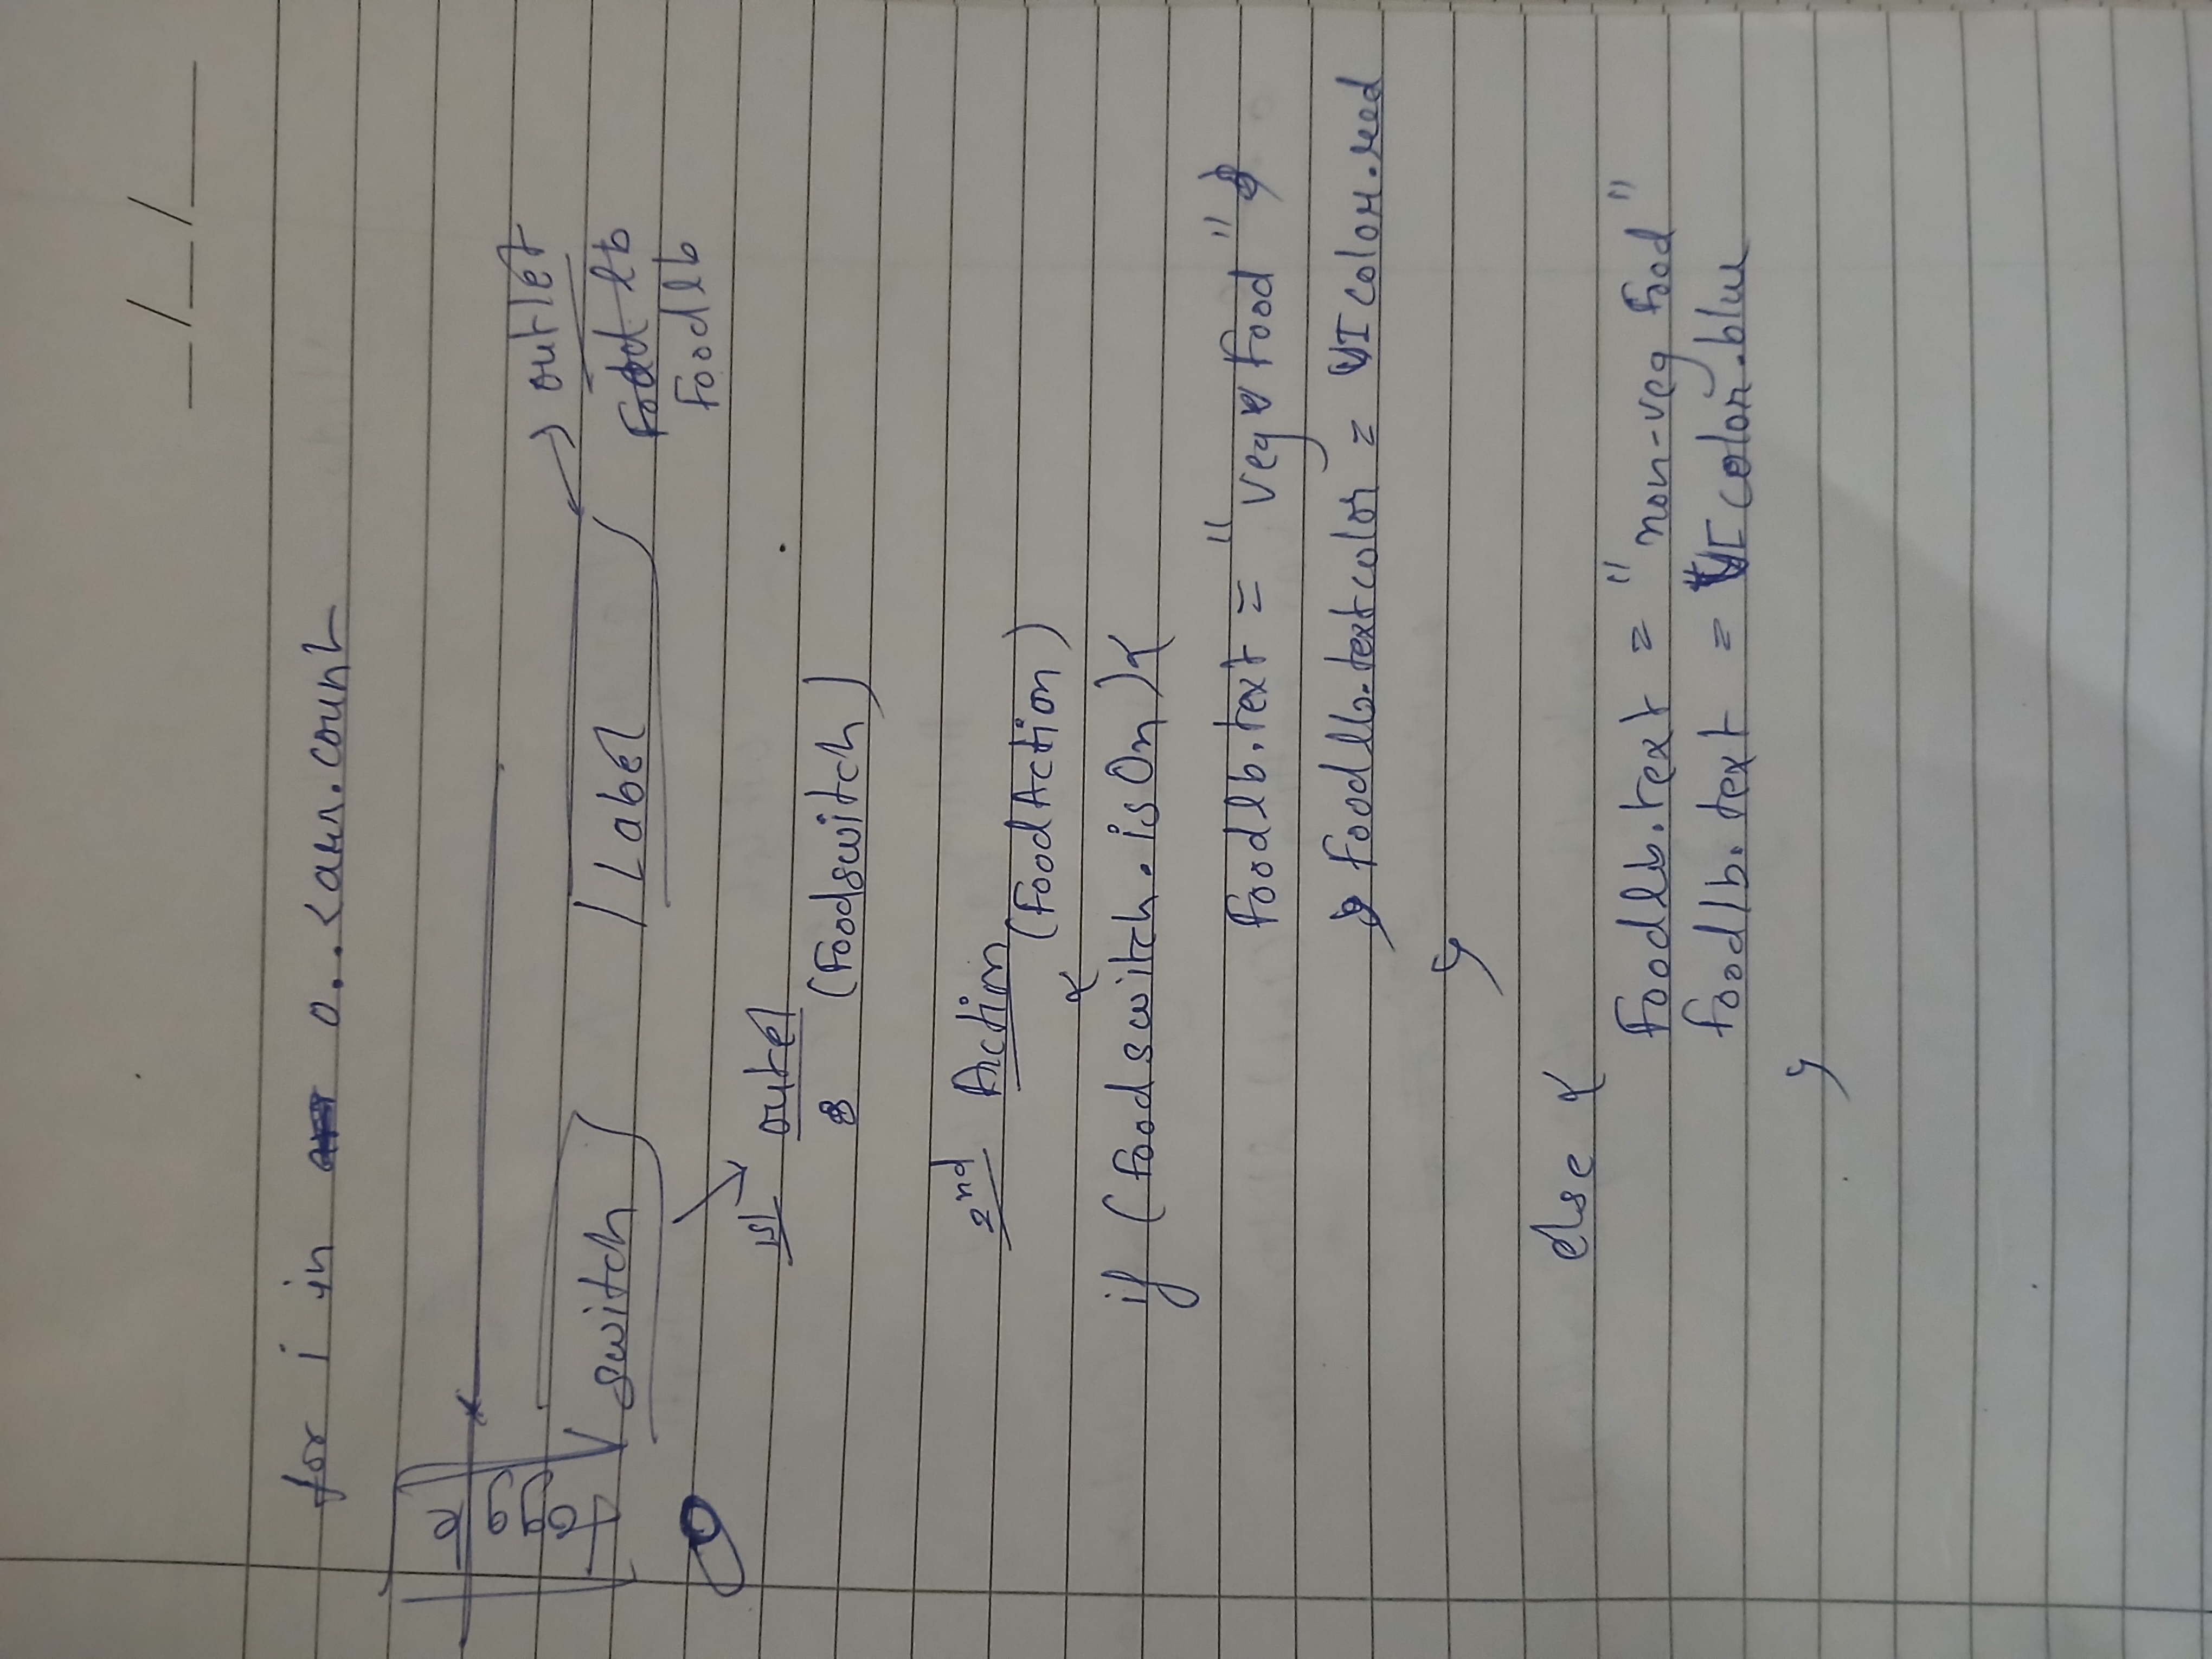 __/__/____
for i in 0..<arr.count
toggle
switch
Label
outlet
Food lb
Foodlb
1st outel
(Foodswitch)
2nd Action
(FoodAction)
{
if (foodswitch.isOn){
foodlb.text = "veg food"
foodlb.textcolor = UIcolor.red
}
else {
foodlb.text = "non-veg food"
foodlb.text = UIcolor.blue
}